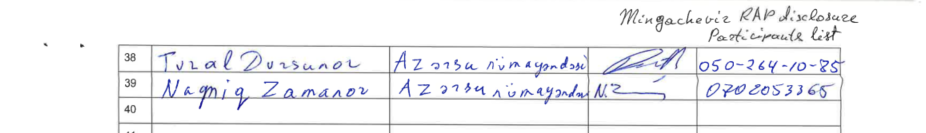 Mingachevir RAP disclosure
Participants list
38 Tural Dursunov Azərsu nümayəndəsi 050-264-10-85
39 Namiq Zamanov Azərsu nümayəndəsi N.Z 0702053365
40